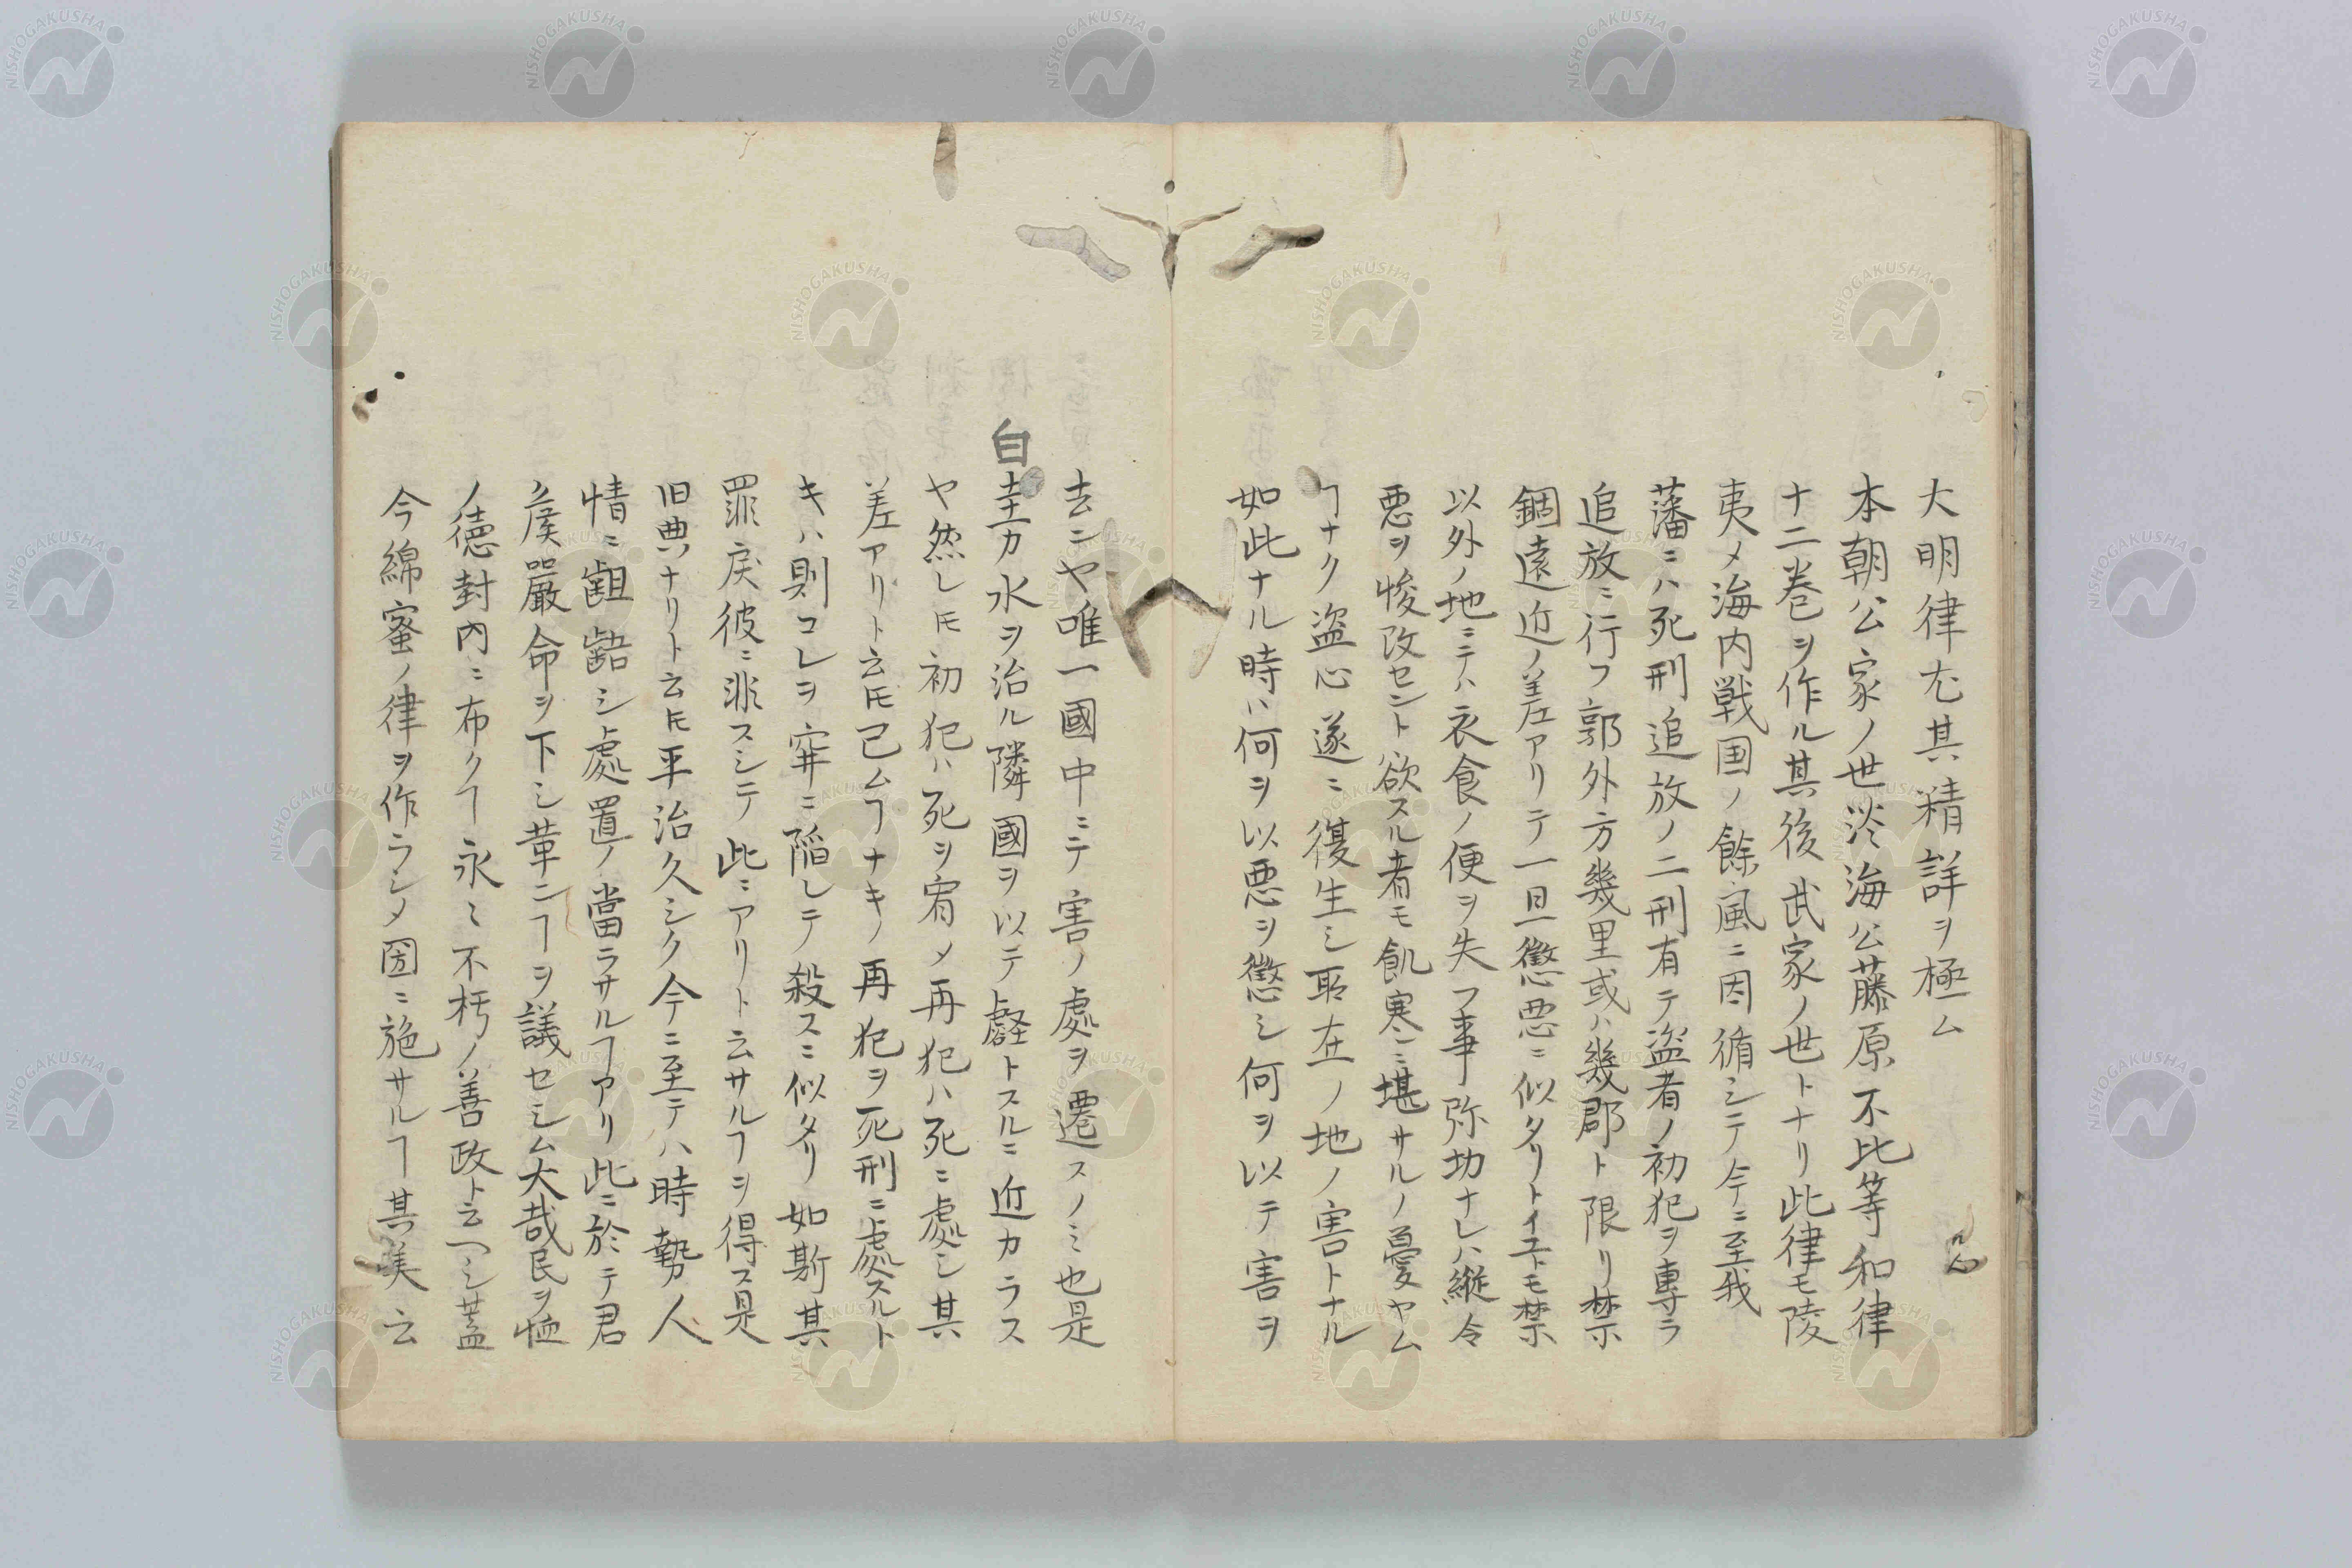 大明律尤其精詳ヲ極ム
本朝公家ノ世淡海公藤原不比等和律
十二巻ヲ作ル其後武家ノ世トナリ此律モ陵
夷メ海内戦国ノ餘風ニ因循シテ今ニ至我
藩ニハ死刑追放ノ二刑有テ盗者ノ初犯ヲ專ラ
追放ニ行フ郭外方幾里或ハ幾郡ト限リ禁
錮遠近ノ差アリテ一旦懲悪ニ似タリトイヱトモ禁
以外ノ地ニテハ衣食ノ便ヲ失フ事弥功ナレハ縦令
悪ヲ悛改セント欲スル者モ飢寒ニ堪サルノ憂ヤム
ヿナク盗心遂ニ復生シ所在ノ地ノ害トナル
如此ナル時ハ何ヲ以悪ヲ懲シ何ヲ以テ害ヲ
去ンヤ唯一國中ニテ害ノ處ヲ遷スノミ也是
白圭カ水ヲ治ル隣國ヲ以テ壑トスルニ近カラス
ヤ然レㇳモ初犯ハ死ヲ宥メ再犯ハ死ニ處シ其
差アリト云ㇳモ已ムヿナキノ再犯ヲ死刑ニ處スルト
キハ則コレヲ穽ニ陥レテ殺スニ似タリ如斯其
罪戻彼ニ非スシテ此ニアリト云サルヿヲ得ス是
旧典ナリト云ㇳモ平治久シク今ニ至テハ時勢人
情ニ齟齬シ處置ノ當ラサルヿアリ此ニ於テ君
矦嚴命ヲ下シ革ンヿヲ議セシム大哉民ヲ恤
ノ徳封内ニ布クヿ永ミ不朽ノ善政ト云ヘシ蓋
今綿蜜ノ律ヲ作ラシメ圀ニ施サルヿ其美云
NISHOGAKUSHA